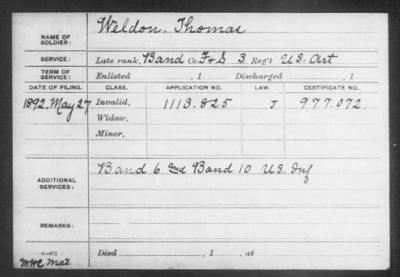 NAME OF SOLDIER: Weldon, Thomas
SERVICE: Late rank, Band Co. F & S 3 Reg't U.S. Art
TERM OF SERVICE: Enlisted , 1 Discharged , 1
DATE OF FILING. CLASS. APPLICATION NO. LAW. CERTIFICATE NO.
1892, May 27 Invalid, 1113.825 J 977.072.
Widow,
Minor,
ADDITIONAL SERVICES: Band 6 and Band 10 U.S. Inf
REMARKS:
Died , 1 , at